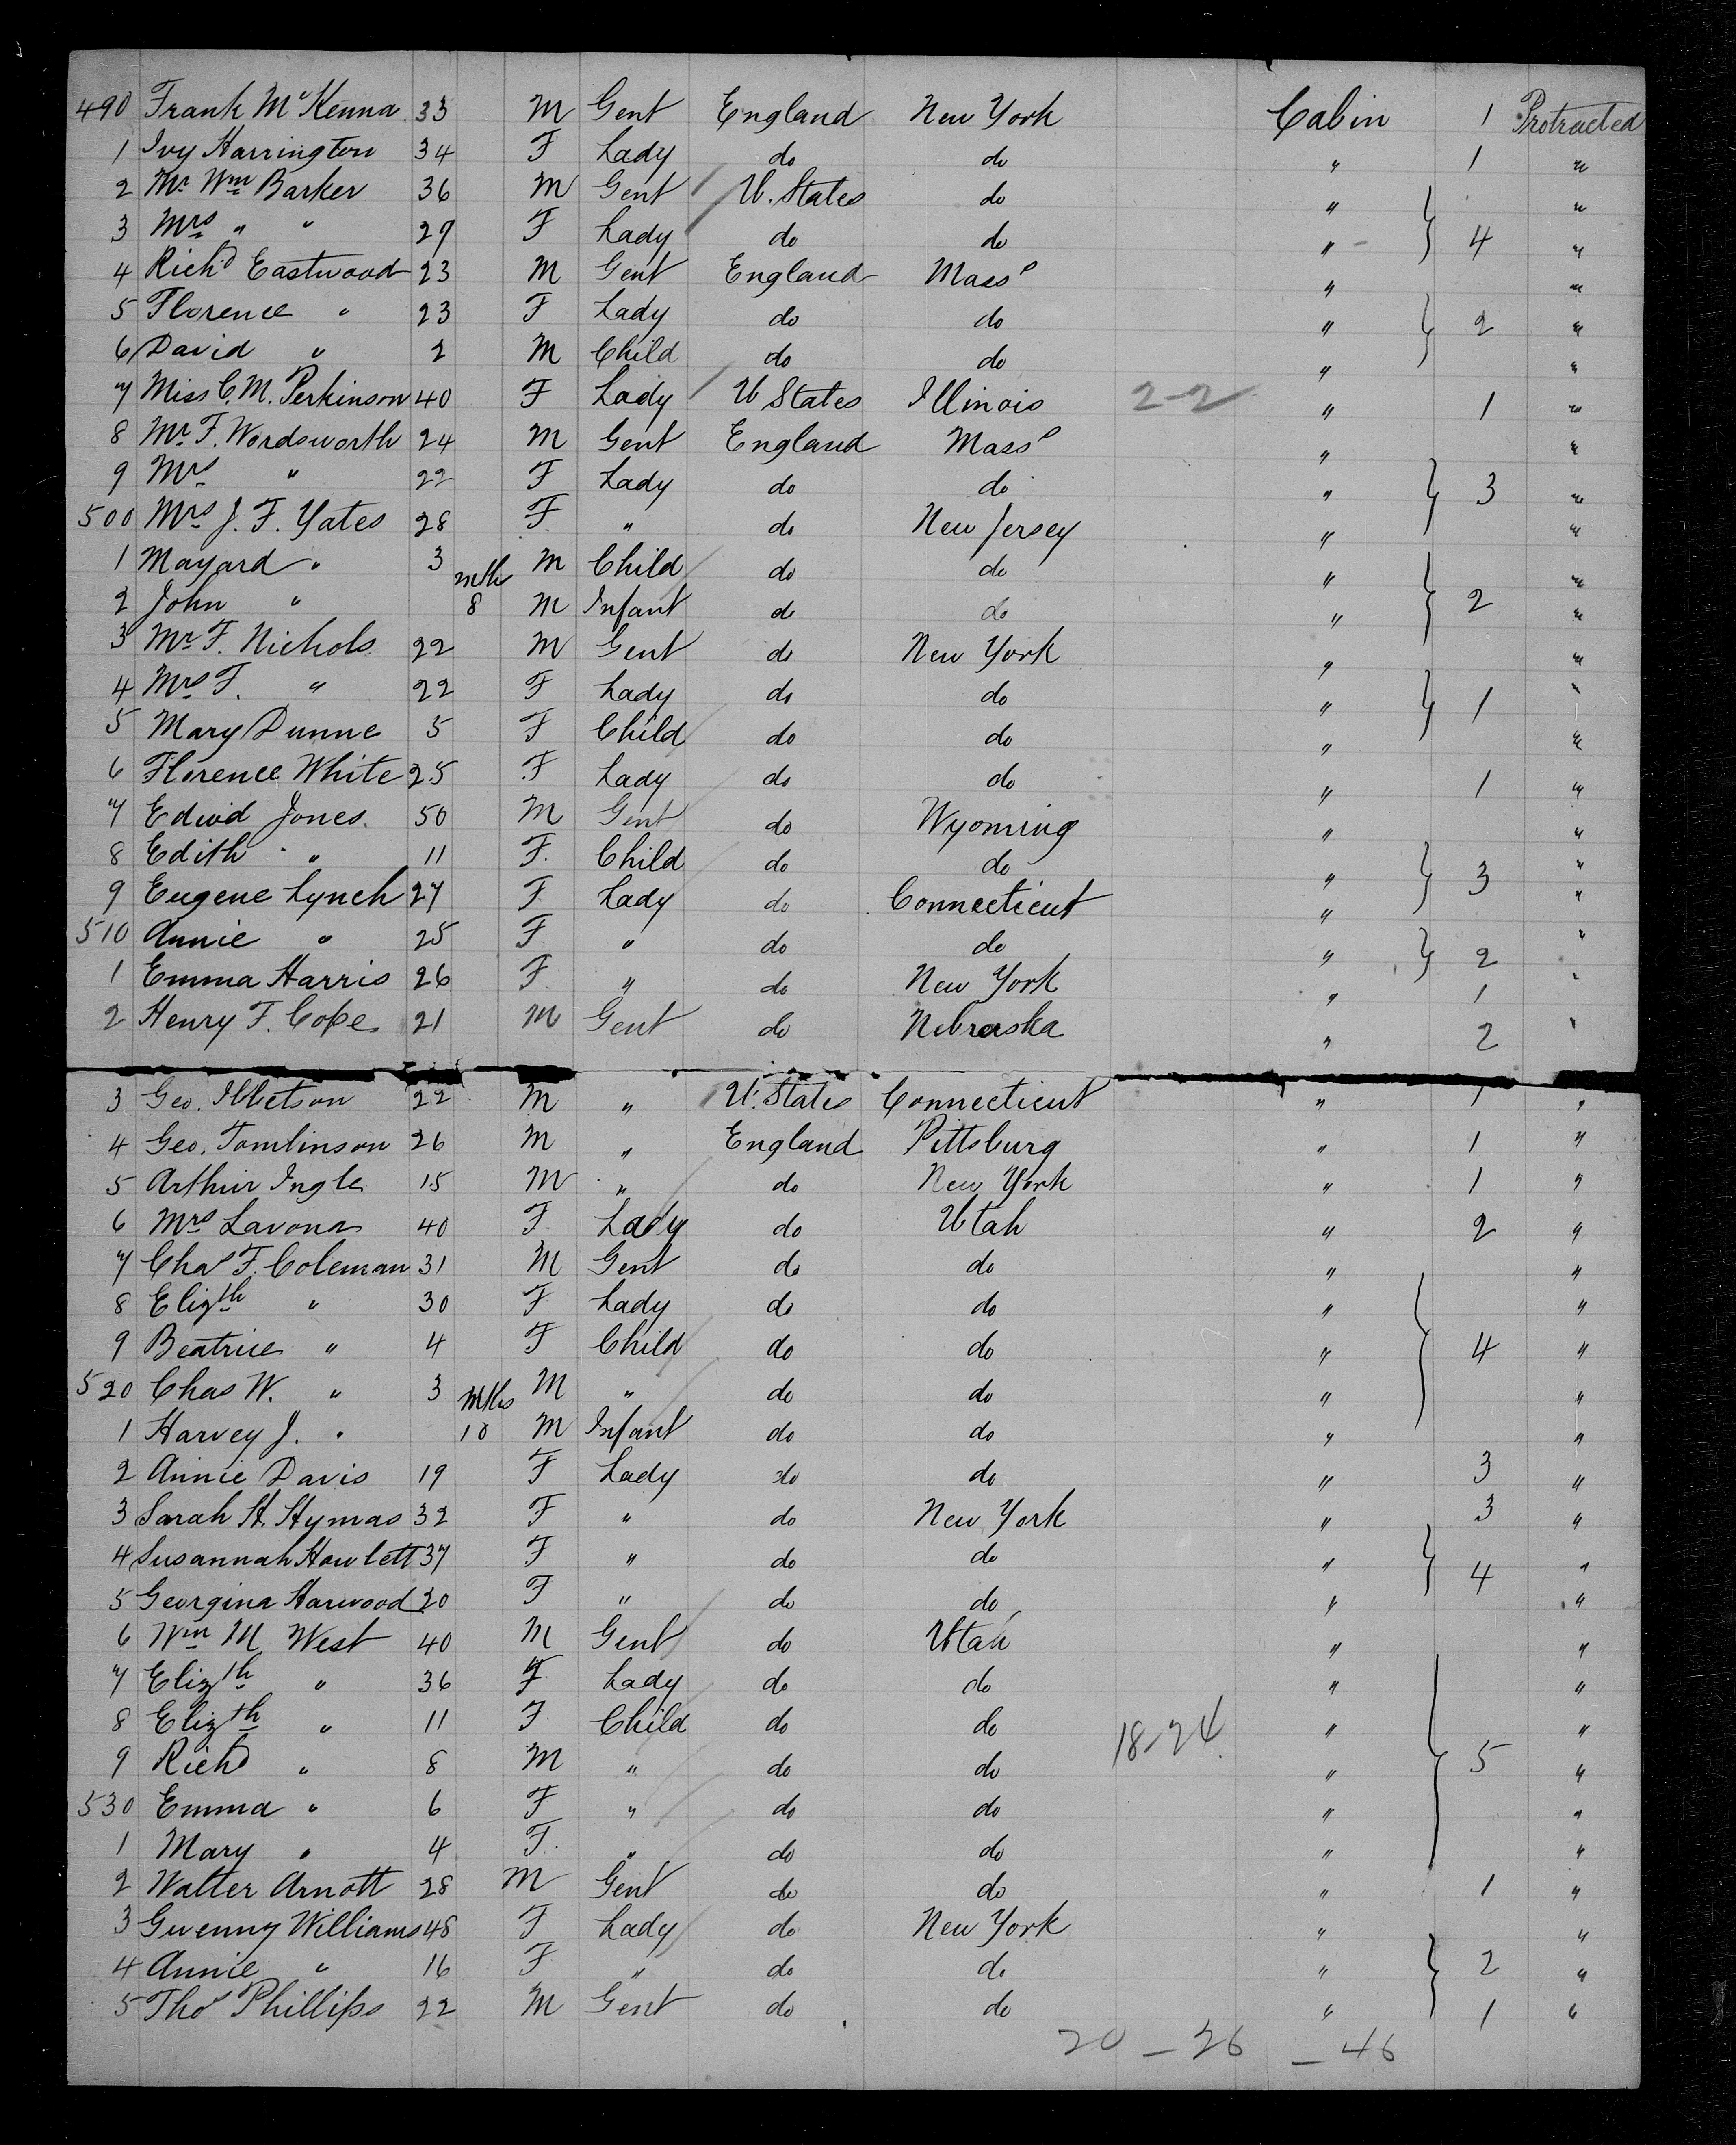 490 Frank McKenna 33 M Gent England New York Cabin 1 Protracted
1 Ivy Harrington 34 F Lady do do " 1 "
2 Mr Wm Barker 36 M Gent U. States do " "
3 Mrs " " 29 F Lady do do " 4 "
4 Richd Eastwood 23 M Gent England Mass " "
5 Florence " 23 F Lady do do " 2 "
6 David " 2 M Child do do " "
7 Miss C. M. Perkinson 40 F Lady U States Illinois 2-2 " 1 "
8 Mr F. Wordsworth 24 M Gent England Mass " "
9 Mrs " 22 F Lady do do " 3 "
500 Mrs J. F. Yates 28 F " do New Jersey " "
1 Mayard " 3 M Child do do " "
2 John " mth 8 M Infant do do " 2 "
3 Mr F. Nichols 22 M Gent do New York " "
4 Mrs F. " 22 F Lady do do " 1 "
5 Mary Dunne 5 F Child do do " "
6 Florence White 25 F Lady do do " 1 "
7 Edwd Jones 50 M Gent do Wyoming " "
8 Edith " 11 F Child do do " 3 "
9 Eugene Lynch 27 F Lady do Connecticut " "
510 Annie " 25 F " do do " 2 "
1 Emma Harris 26 F " do New York " 1 "
2 Henry F. Cope 21 M Gent do Nebraska " 2 "
3 Geo. Ibbetson 22 M " U. States Connecticut " 1 "
4 Geo. Tomlinson 26 M " England Pittsburg " 1 "
5 Arthur Ingle 15 M " do New York " 1 "
6 Mrs Lavona 40 F Lady do Utah " 2 "
7 Chas F. Coleman 31 M Gent do do " "
8 Elizth " 30 F Lady do do " "
9 Beatrice " 4 F Child do do " 4 "
520 Chas W. " 3 M " do do " "
1 Harvey J. " mths 10 M Infant do do " "
2 Annie Davis 19 F Lady do do " 3 "
3 Sarah H. Hymas 32 F " do New York " 3 "
4 Susannah Howlett 37 F " do do " 4 "
5 Georgina Harwood 20 F " do do " "
6 Wm M West 40 M Gent do Utah " "
7 Elizth " 36 F Lady do do " "
8 Elizth " 11 F Child do do 18-24 " "
9 Richd " 8 M " do do " 5 "
530 Emma " 6 F " do do " "
1 Mary " 4 F " do do " "
2 Walter Arnott 28 M Gent do do " 1 "
3 Gwenny Williams 48 F Lady do New York " "
4 Annie " 16 F " do do " 2 "
5 Thos Phillips 22 M Gent do do " 1 "
20 - 26 - 46